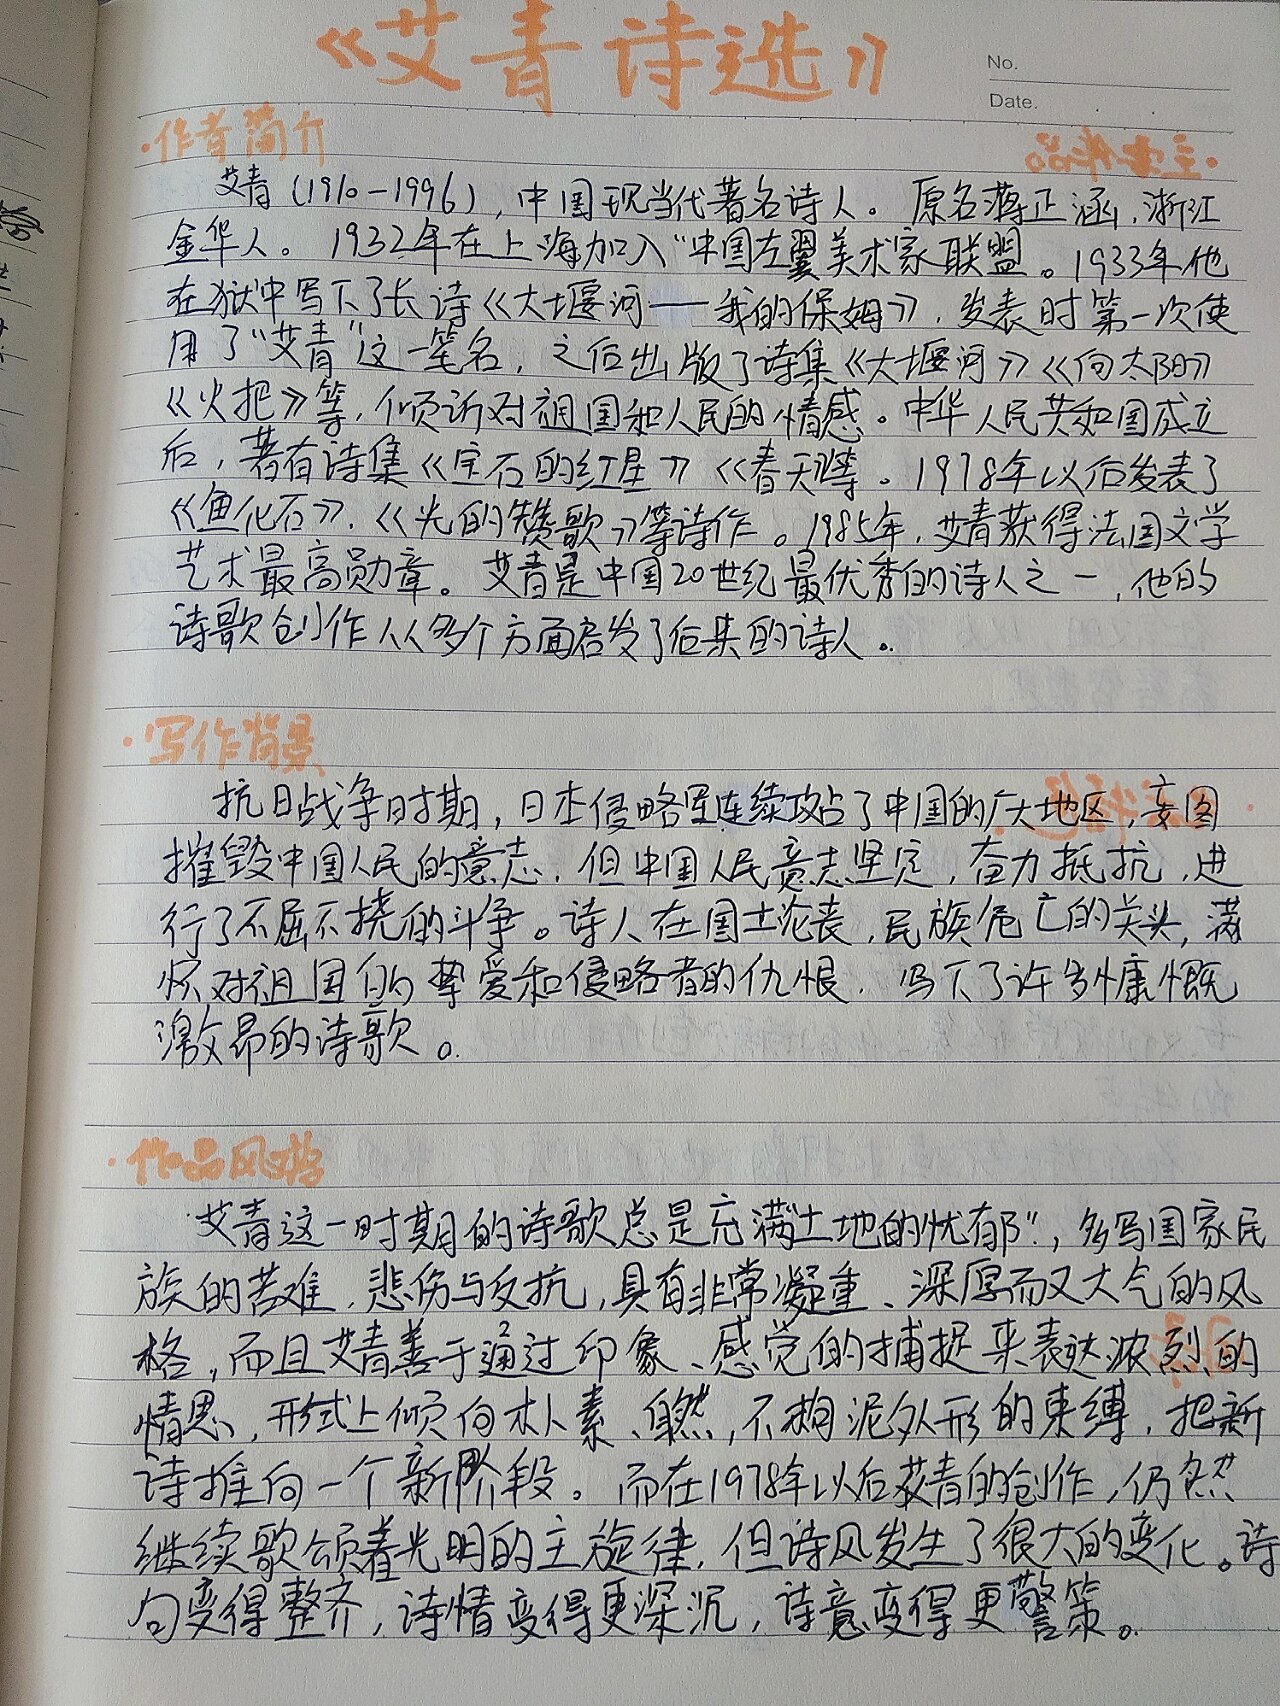 《艾青诗选》
No.
Date.
·作者简介
艾青(1910-1996),中国现当代著名诗人。原名蒋正涵,浙江
金华人。1932年在上海加入"中国左翼美术家联盟。1933年他
在狱中写下了长诗《大堰河——我的保姆》,发表时第一次使
用了"艾青"这一笔名,之后出版了诗集《大堰河》《向太阳》
《火把》等,倾诉对祖国和人民的情感。中华人民共和国成立
后,著有诗集《宝石的红星》《春天》等。1978年以后发表了
《鱼化石》、《光的赞歌》等诗作。1985年,艾青获得法国文学
艺术最高勋章。艾青是中国20世纪最优秀的诗人之一,他的
诗歌创作从多个方面启发了后来的诗人。
·写作背景
抗日战争时期,日本侵略军连续攻占了中国的广大地区,妄图
摧毁中国人民的意志,但中国人民意志坚定,奋力抵抗,进
行了不屈不挠的斗争。诗人在国土沦丧,民族危亡的关头,满
怀对祖国的挚爱和侵略者的仇恨,写下了许多慷慨
激昂的诗歌。
·作品风格
艾青这一时期的诗歌总是充满"土地的忧郁",多写国家民
族的苦难、悲伤与反抗,具有非常凝重、深厚而又大气的风
格,而且艾青善于通过印象、感觉的捕捉来表达浓烈的
情思,形式上倾向朴素、自然,不拘泥外形的束缚,把新
诗推向一个新阶段。而在1978年以后艾青的创作,仍然
继续歌颂着光明的主旋律,但诗风发生了很大的变化。诗
句变得整齐,诗情变得更深沉,诗意变得更警策。